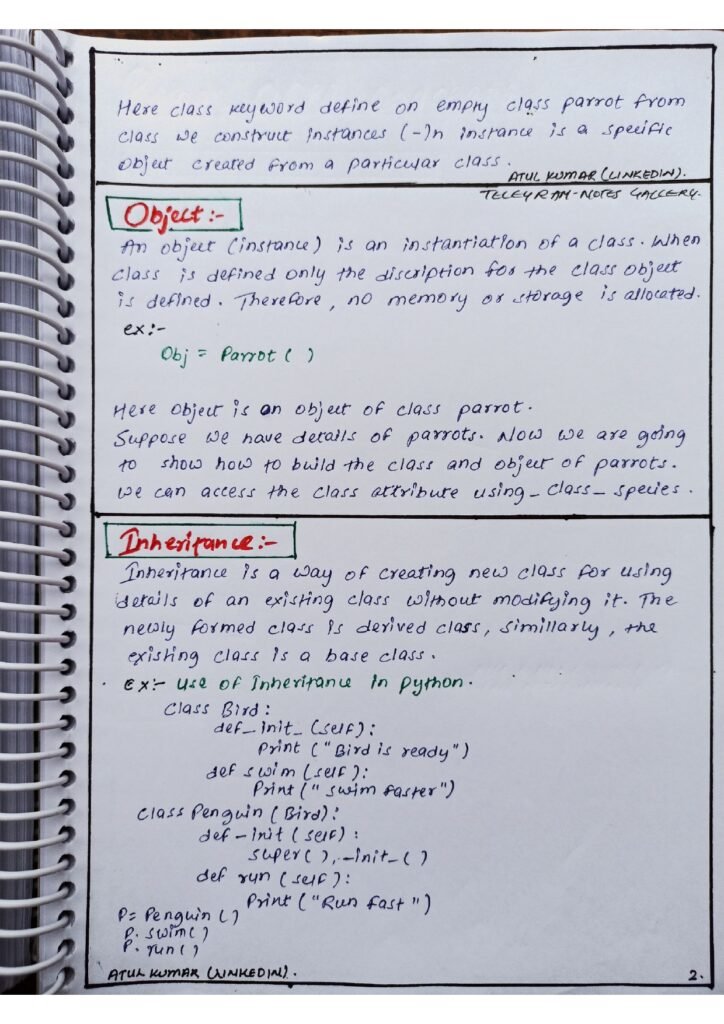 Here class keyword define on empty class parrot from
class we construct instances (-)n instance is a specific
object created from a particular class.
ATUL KUMAR (LINKEDIN).
TELEGRAM-NOTES GALLERY.
Object :-
An object (instance) is an instantiation of a class. When
class is defined only the discription for the class object
is defined. Therefore, no memory or storage is allocated.
ex:-
Obj = Parrot ( )
Here object is an object of class parrot.
Suppose we have details of parrots. Now we are going
to show how to build the class and object of parrots.
we can access the class attribute using_class_species.
Inheritance :-
Inheritance is a way of creating new class for using
details of an existing class without modifying it. The
newly formed class is derived class, simillarly, the
existing class is a base class.
Ex:- use of Inheritance in python.
Class Bird :
def_init_ (self) :
Print ("Bird is ready")
def swim (self) :
Print (" swim faster")
Class Penguin (Bird) :
def -init (self) :
super( ), -init_ ( )
def run (self) :
Print ("Run fast ")
P= Penguin ( )
P. swim( )
P. run( )
ATUL KUMAR (LINKEDIN).
2.